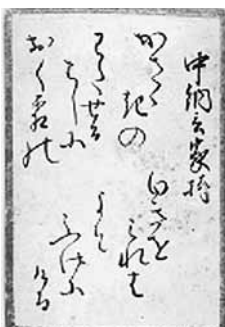 中納言家持
かさゝきの
わたせる
はしに
おく霜の
白きを
みれは
よそ
ふけに
ける